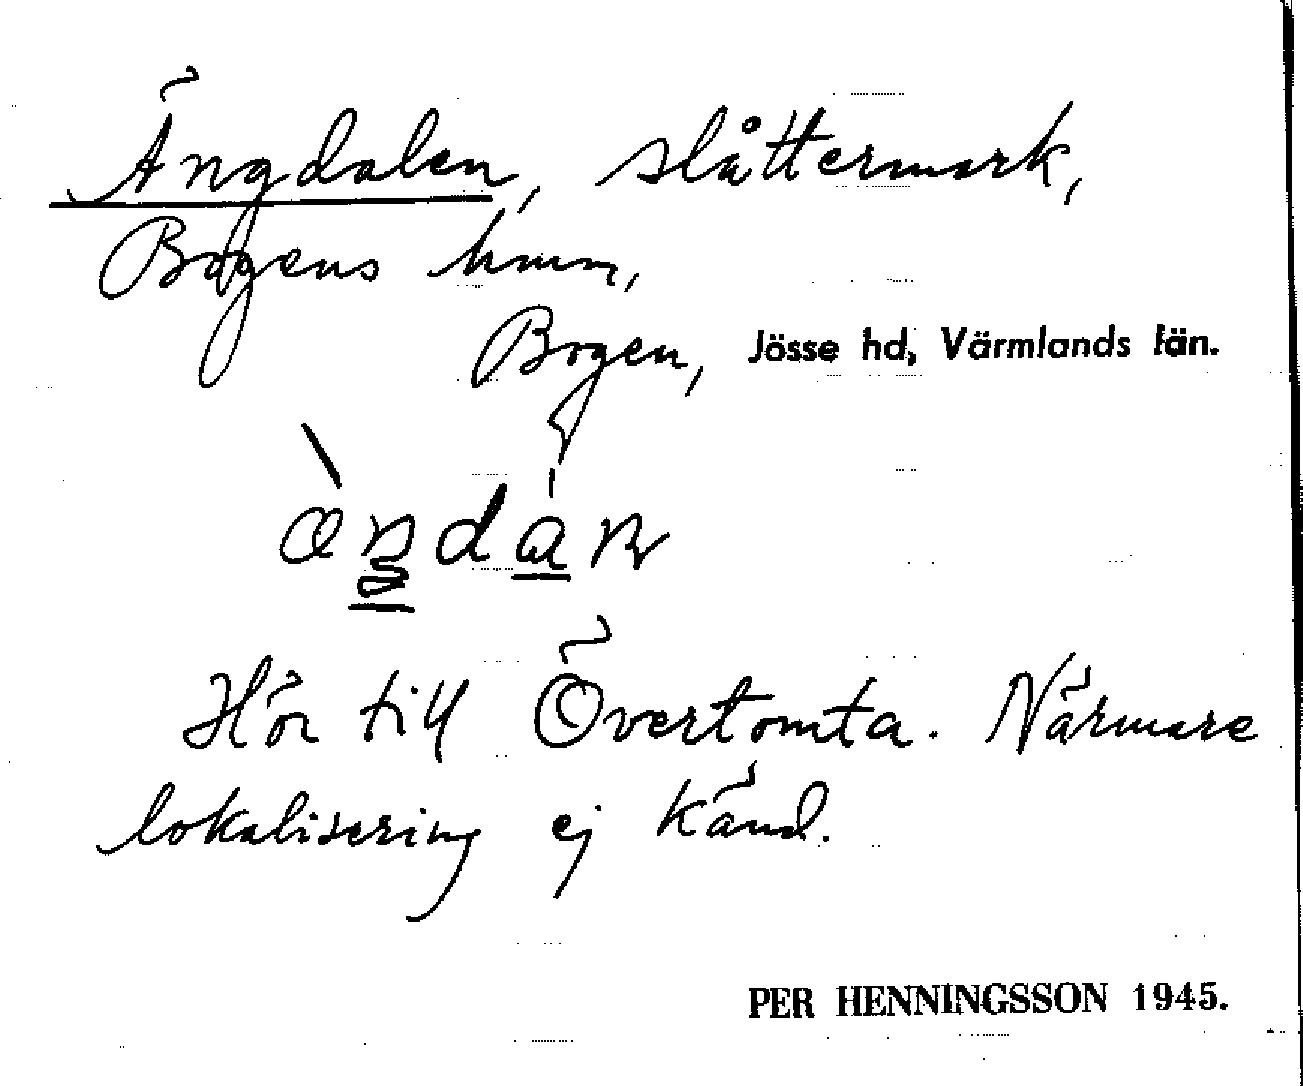 Ängdalen, slåttermark,
Bogens hmn,
Bogen, Jössе hd, Värmlands län.
Hör till Övertomta. Närmare
lokalisering ej känd.
PER HENNINGSSON 1945.